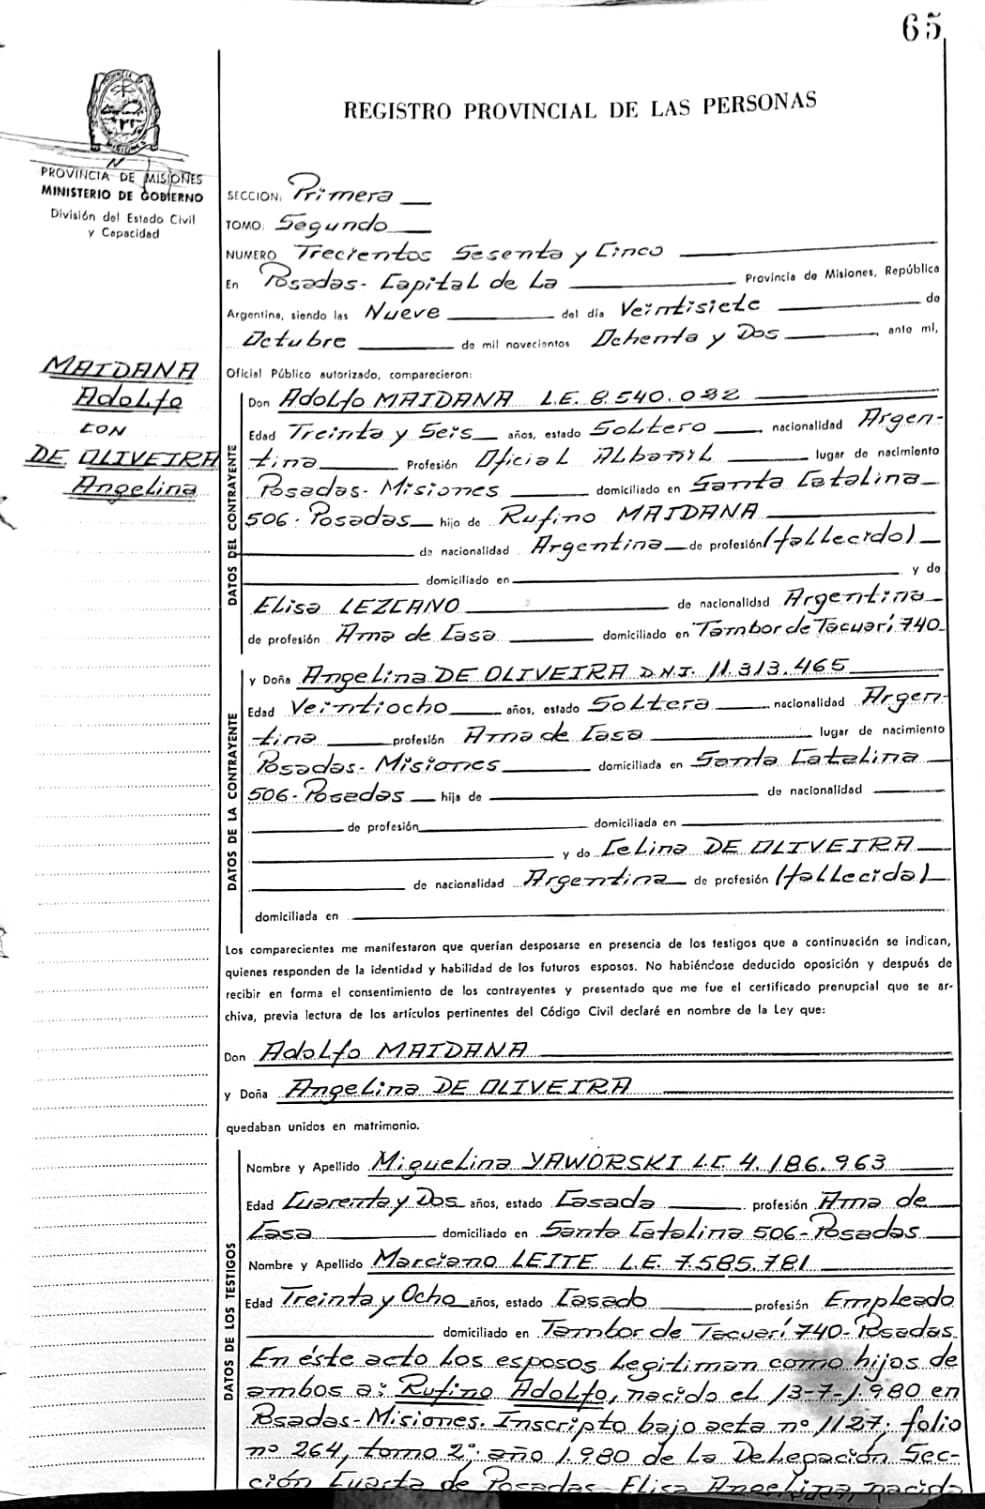 65
REGISTRO PROVINCIAL DE LAS PERSONAS
PROVINCIA DE MISIONES
MINISTERIO DE GOBIERNO
División del Estado Civil
y Capacidad
MAIDANA
Adolfo
CON
DE OLIVEIRA
Angelina
SECCION: Primera
TOMO: Segundo
NUMERO Trecientos Sesenta y Cinco
En Posadas - Capital de La Provincia de Misiones, República
Argentina, siendo las Nueve del día Veintisiete de
Octubre de mil novecientos Ochenta y Dos, ante mí,
Oficial Público autorizado, comparecieron:
DATOS DEL CONTRAYENTE
Don Adolfo MAIDANA L.E. 8.540.082
Edad Treinta y Seis años, estado Soltero nacionalidad Argen-
tina Profesión Oficial Albañil lugar de nacimiento
Posadas - Misiones domiciliado en Santa Catalina
506 - Posadas hijo de Rufino MAIDANA
de nacionalidad Argentina de profesión (fallecido)
domiciliado en y de
Elisa LEZCANO de nacionalidad Argentina
de profesión Ama de Casa domiciliado en Tambor de Tacuarí 740
DATOS DE LA CONTRAYENTE
y Doña Angelina DE OLIVEIRA D.N.I. 11.313.465
Edad Veintiocho años, estado Soltera nacionalidad Argen-
tina profesión Ama de Casa lugar de nacimiento
Posadas - Misiones domiciliada en Santa Catalina
506 - Posadas hija de de nacionalidad
de profesión domiciliada en
y de Celina DE OLIVEIRA
de nacionalidad Argentina de profesión (fallecida)
domiciliada en
Los comparecientes me manifestaron que querían desposarse en presencia de los testigos que a continuación se indican,
quienes responden de la identidad y habilidad de los futuros esposos. No habiéndose deducido oposición y después de
recibir en forma el consentimiento de los contrayentes y presentado que me fue el certificado prenupcial que se ar-
chiva, previa lectura de los artículos pertinentes del Código Civil declaré en nombre de la Ley que:
Don Adolfo MAIDANA
y Doña Angelina DE OLIVEIRA
quedaban unidos en matrimonio.
DATOS DE LOS TESTIGOS
Nombre y Apellido Miguelina YAWORSKI L.C. 4.186.963
Edad Cuarenta y Dos años, estado Casada profesión Ama de
Casa domiciliado en Santa Catalina 506 - Posadas
Nombre y Apellido Marciano LEITE L.E. 7.585.781
Edad Treinta y Ocho años, estado Casado profesión Empleado
domiciliado en Tambor de Tacuarí 740 - Posadas.
En éste acto los esposos legitiman como hijos de
ambos a: Rufino Adolfo, nacido el 13-7-1.980 en
Posadas - Misiones. Inscripto bajo acta nº 1127, folio
nº 264, tomo 2º, año 1.980 de la Delegación Sec-
ción Cuarta de Posadas - Elisa Angelina, nacida